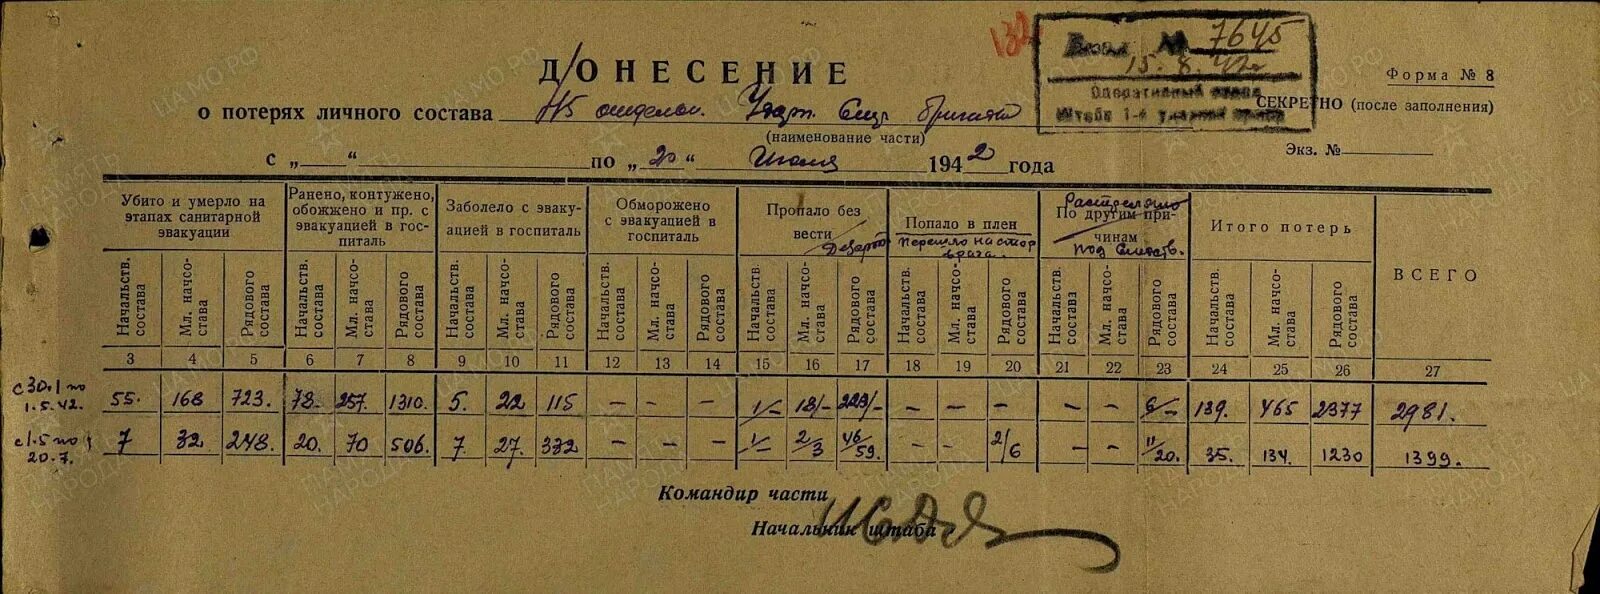 132
Входящ. № 7645
15.8.42г
Оперативный отдел
Штаба 1-й ударной армии
ДОНЕСЕНИЕ
Форма № 8
о потерях личного состава Ударн. Стр. бригады
СЕКРЕТНО (после заполнения)
(наименование части)
Экз. №
с „ “ по „ 20 “ Июля 1942 года
Убито и умерло на этапах санитарной эвакуации
Ранено, контужено, обожжено и пр. с эвакуацией в гос-питаль
Заболело с эваку-ацией в госпиталь
Обморожено с эвакуацией в госпиталь
Пропало без вести / Дезерт
Попало в плен
Перешло на стор врага.
Расстреляно
По другим при-чинам
под следств.
Итого потерь
ВСЕГО
Начальств. состава Мл. начсо-става Рядового состава Начальств. состава Мл. начсо-става Рядового состава Начальств. состава Мл. начсо-става Рядового состава Начальств. состава Мл. начсо-става Рядового состава Начальств. состава Мл. начсо-става Рядового состава Начальств. состава Мл. начсо-става Рядового состава Начальств. состава Мл. начсо-става Рядового состава Начальств. состава Мл. начсо-става Рядового состава
3 4 5 6 7 8 9 10 11 12 13 14 15 16 17 18 19 20 21 22 23 24 25 26 27
с 30.1 по 1.5.42. 55. 168 723. 78. 257. 1310. 5. 22 115 – – – 1/– 18/– 229/– – – – – – 6/– 139. 465 2377 2981.
с 1.5 по 20.7. 7 32 248. 20. 70 506. 7. 27. 332 – – – 1/– 2/3 46/59. – – 2/6 – – 11/20. 35. 134. 1230 1399.
Командир части
Начальник штаба